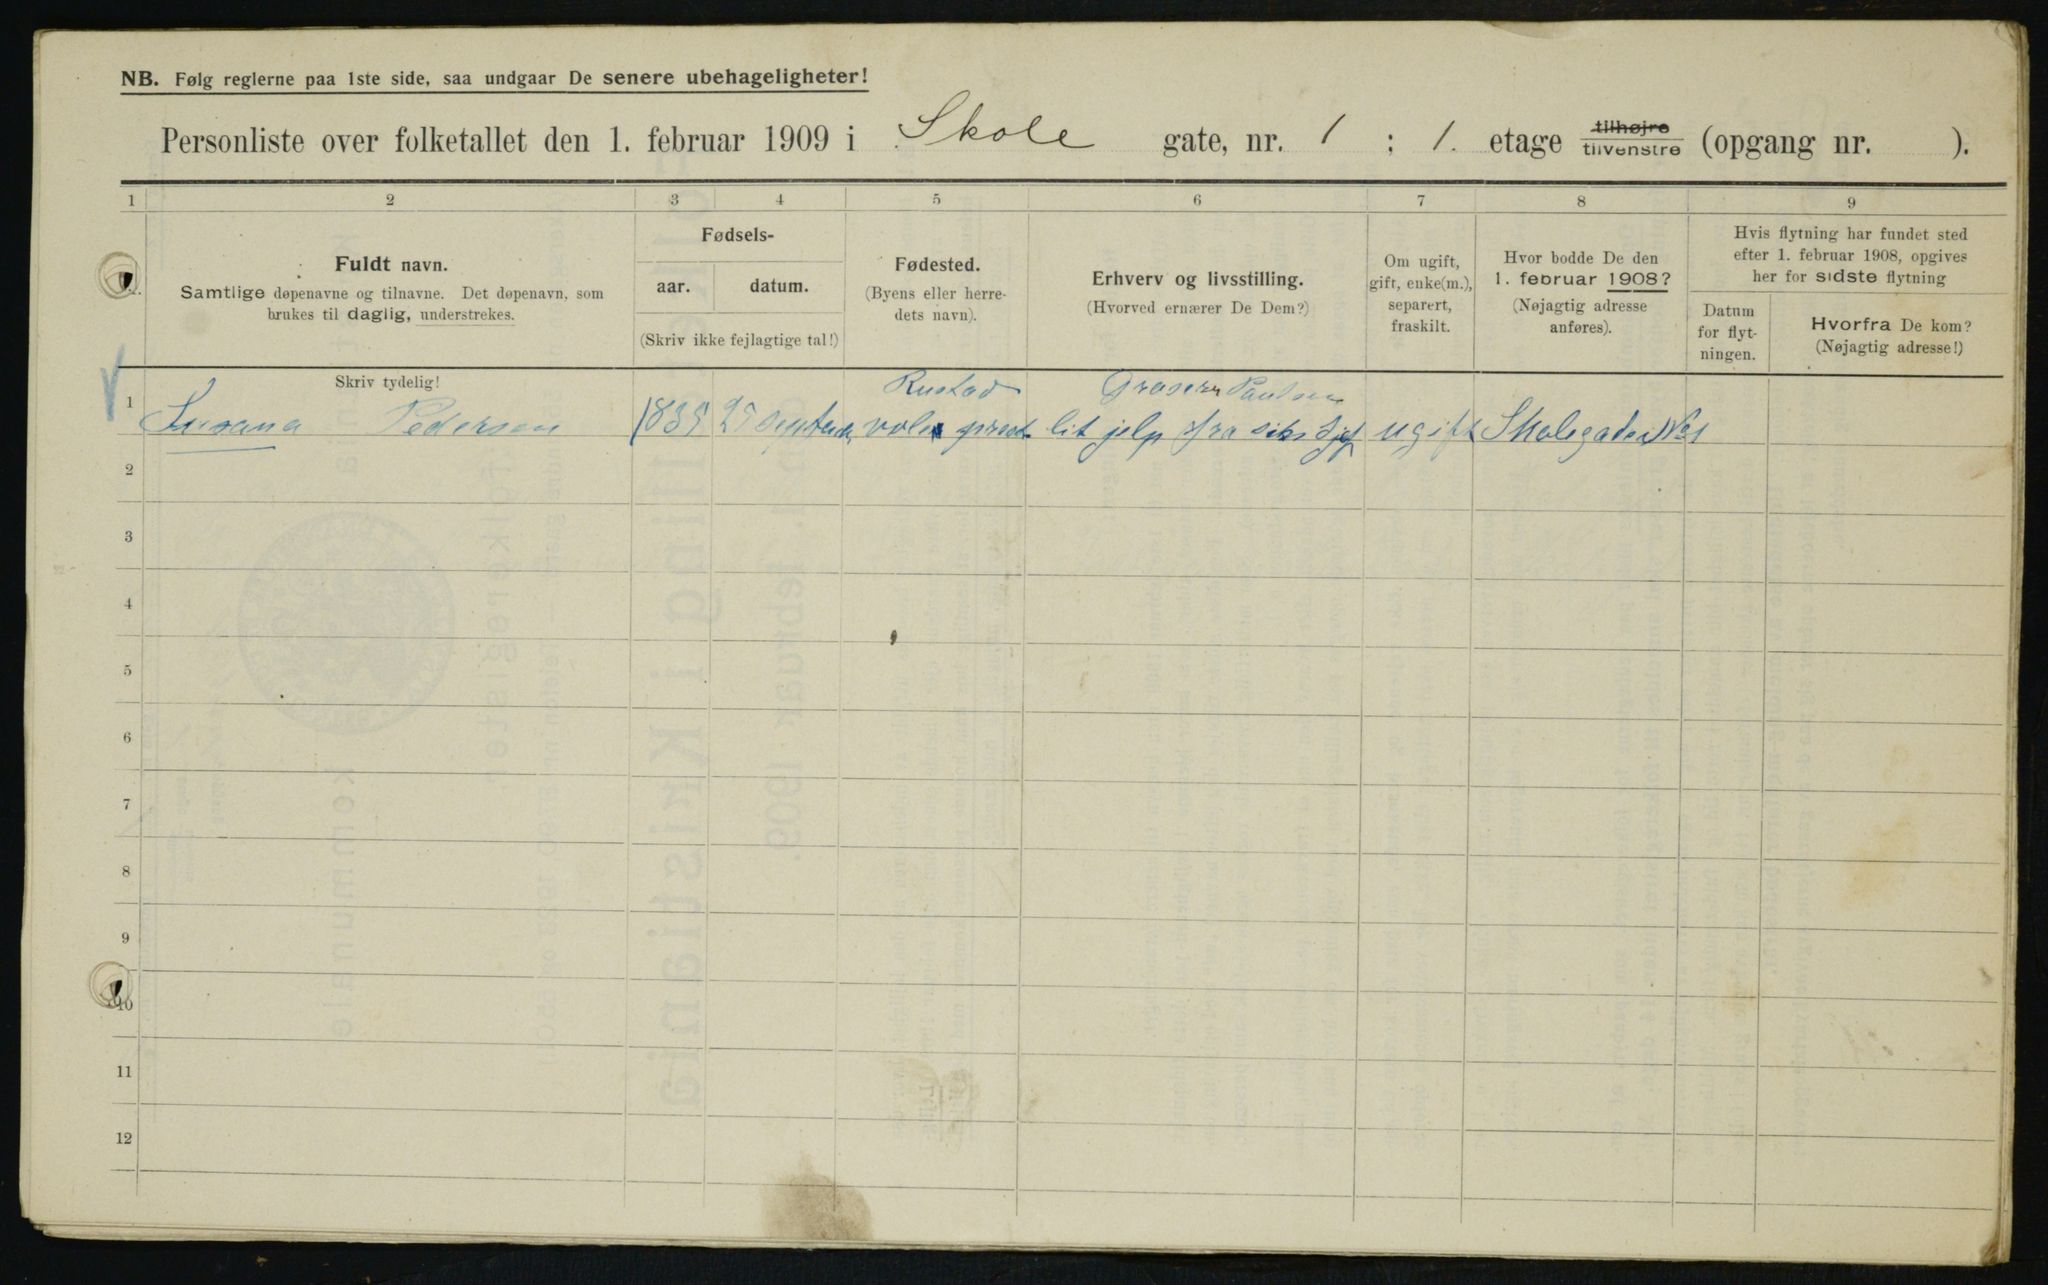 NB. Følg reglerne paa 1ste side, saa undgaar De senere ubehageligheter!
Personliste over folketallet den 1. februar 1909 i Skole gate, nr. 1 : 1. etage tilhøjre tilvenstre (opgang nr. ).
1 2 3 4 5 6 7 8 9
Fuldt navn.
Samtlige døpenavne og tilnavne. Det døpenavn, som
brukes til daglig, understrekes.
Skriv tydelig!
Fødsels-
aar. datum.
(Skriv ikke fejlagtige tal!)
Fødested.
(Byens eller herre-
dets navn).
Erhverv og livsstilling.
(Hvorved ernærer De Dem?)
Om ugift,
gift, enke(m.),
separert,
fraskilt.
Hvor bodde De den
1. februar 1908?
(Nøjagtig adresse
anføres).
Hvis flytning har fundet sted
efter 1. februar 1908, opgives
her for sidste flytning
Datum
for flyt-
ningen.
Hvorfra De kom?
(Nøjagtig adresse!)
Rustad Paulsen
1 Susana Pedersen 1835 25 lit jelp fra ugift Skolegaden No 1
2
3
4
5
6
7
8
9
10
11
12